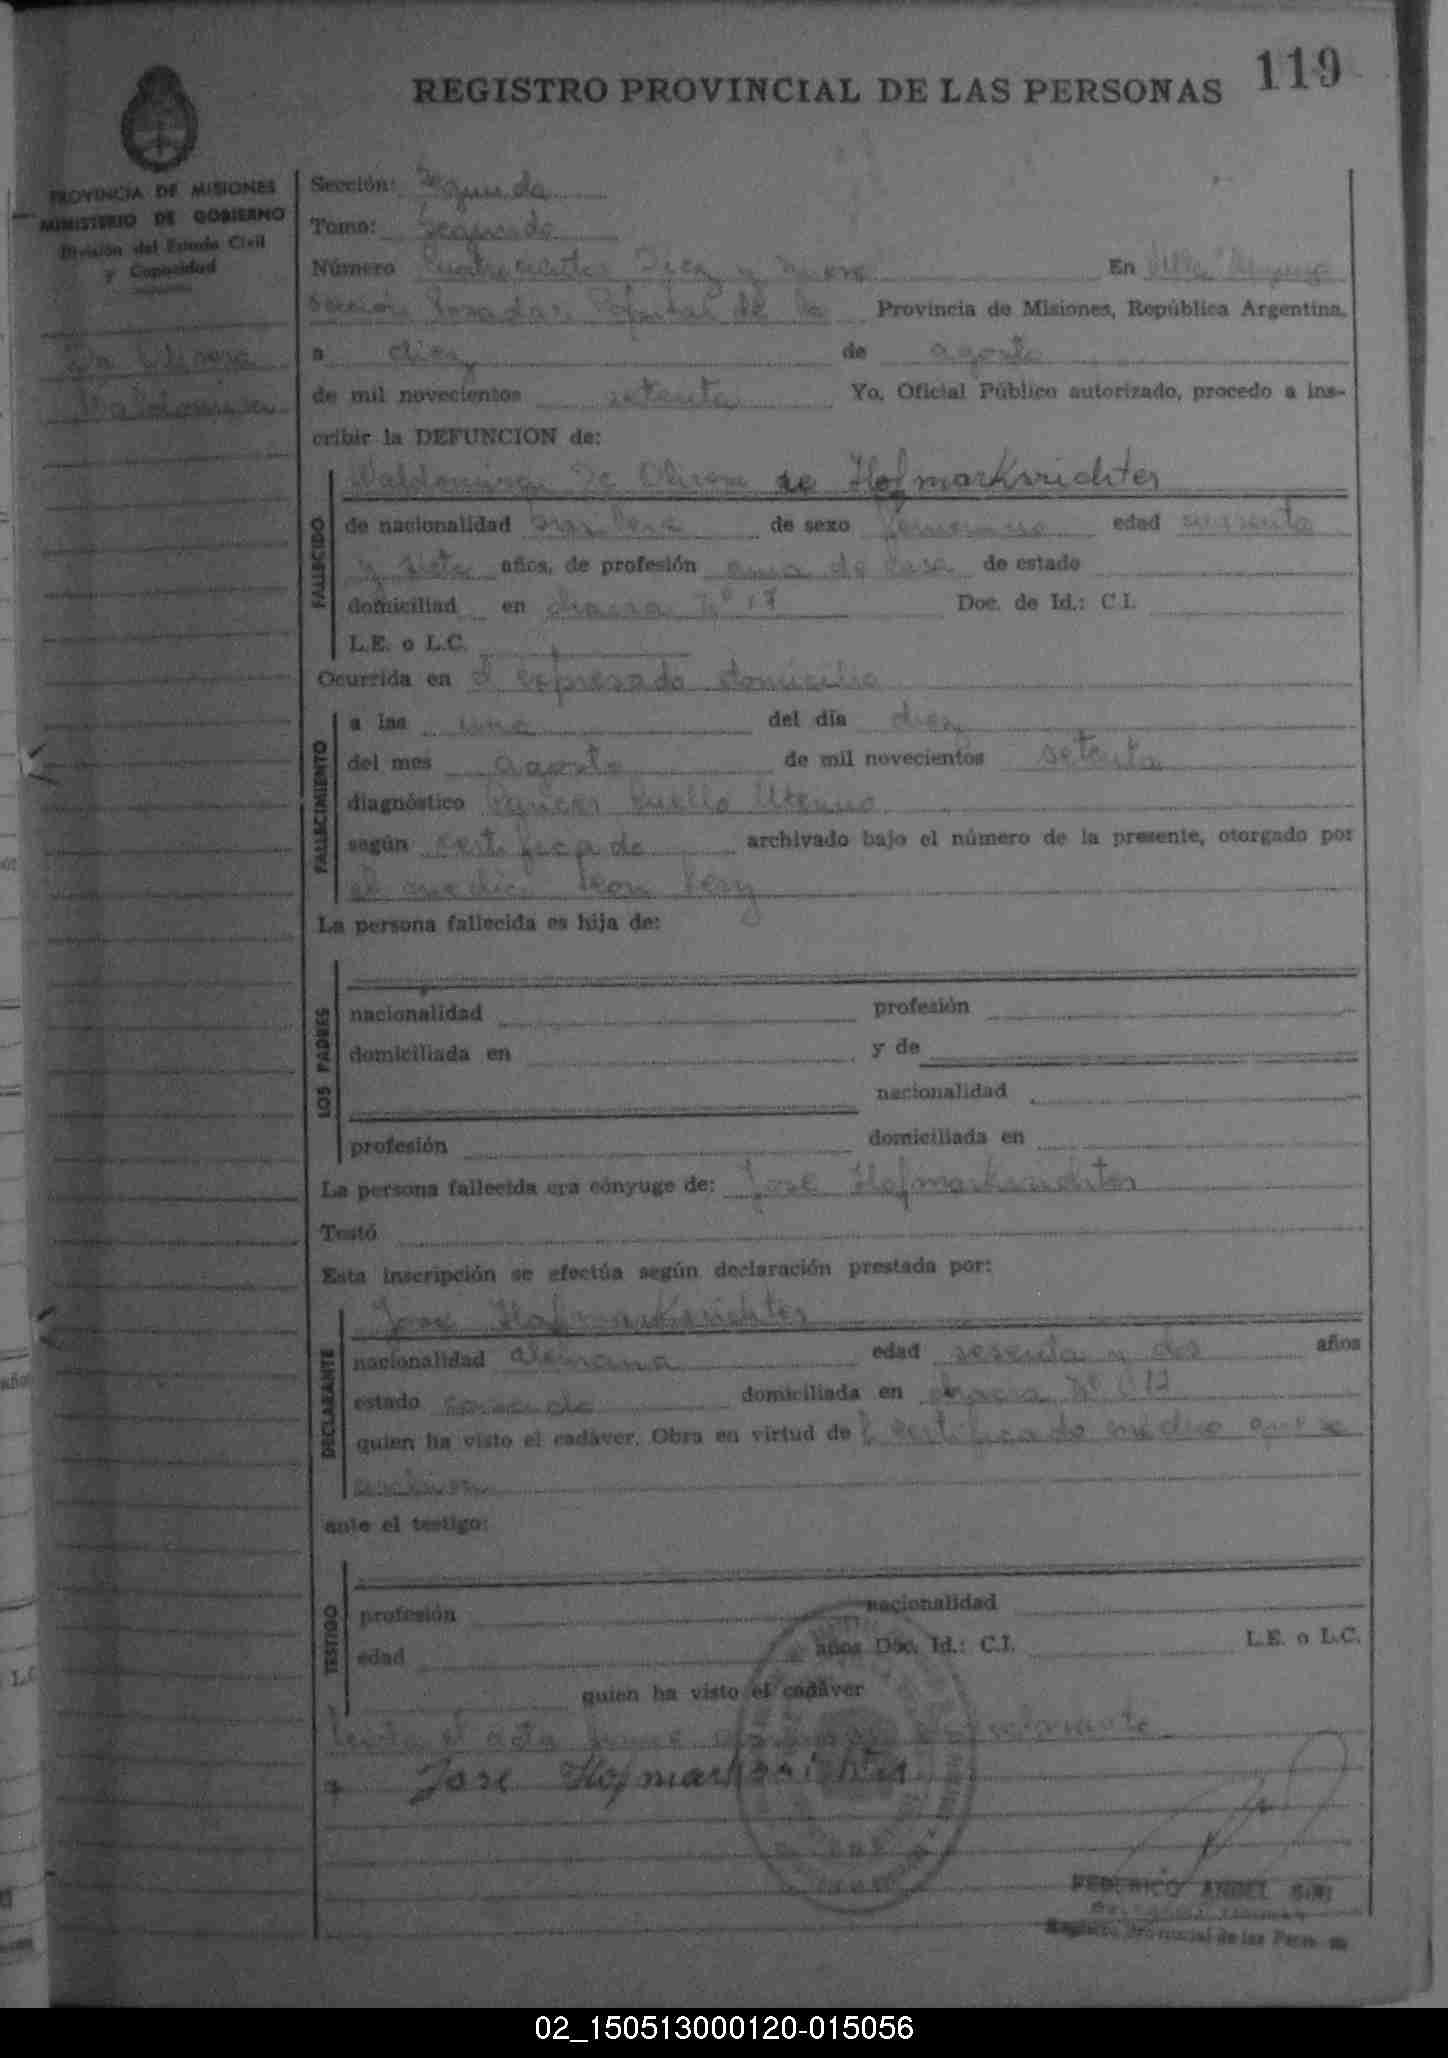 119
REGISTRO PROVINCIAL DE LAS PERSONAS
PROVINCIA DE MISIONES
MINISTERIO DE GOBIERNO
División del Estado Civil
y Capacidad
De Olivera
Waldomira
Sección: Segunda
Tomo: Segundo
Número Cuatrocientos Diez y nueve En Villa
Sección Posadas, Capital de la Provincia de Misiones, República Argentina,
a diez de agosto
de mil novecientos setenta Yo, Oficial Público autorizado, procedo a ins-
cribir la DEFUNCION de:
FALLECIDO
Waldomira De Olivera de Hofmarksrichter
de nacionalidad brasilera de sexo femenino edad
y siete años, de profesión ama de casa de estado
domiciliad en chacra Nº 17 Doc. de Id.: C.I.
L.E. o L.C.
Ocurrida en el expresado domicilio
FALLECIMIENTO
a las una del día diez
del mes agosto de mil novecientos setenta
diagnóstico Cancer Cuello Uterino
según certificado archivado bajo el número de la presente, otorgado por
el medico
La persona fallecida es hija de:
LOS PADRES
nacionalidad profesión
domiciliada en y de
nacionalidad
profesión domiciliada en
La persona fallecida era cónyuge de: Jose Hofmarksrichter
Testó
Esta inscripción se efectúa según declaración prestada por:
DECLARANTE
Jose Hofmarksrichter
nacionalidad alemana edad sesenta y dos años
estado casado domiciliada en chacra Nº 17
quien ha visto el cadáver. Obra en virtud de l certificado médico que se
archiva
ante el testigo:
TESTIGO
profesión nacionalidad
edad años Doc. Id.: C.I. L.E. o L.C.
quien ha visto el cadáver
Leida el acta firma el declarante
Jose Hofmarksrichter
FEDERICO ANGEL
Registro Provincial de las Personas
02_150513000120-015056